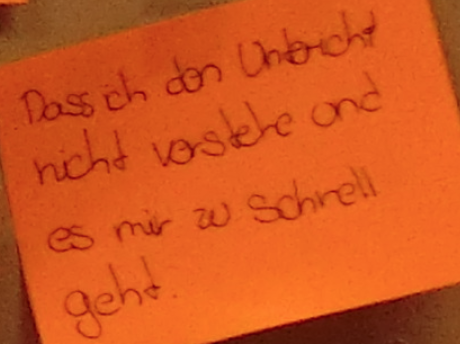 Dass ich den Unterricht
nicht verstehe und
es mir zu Schnell
geht.